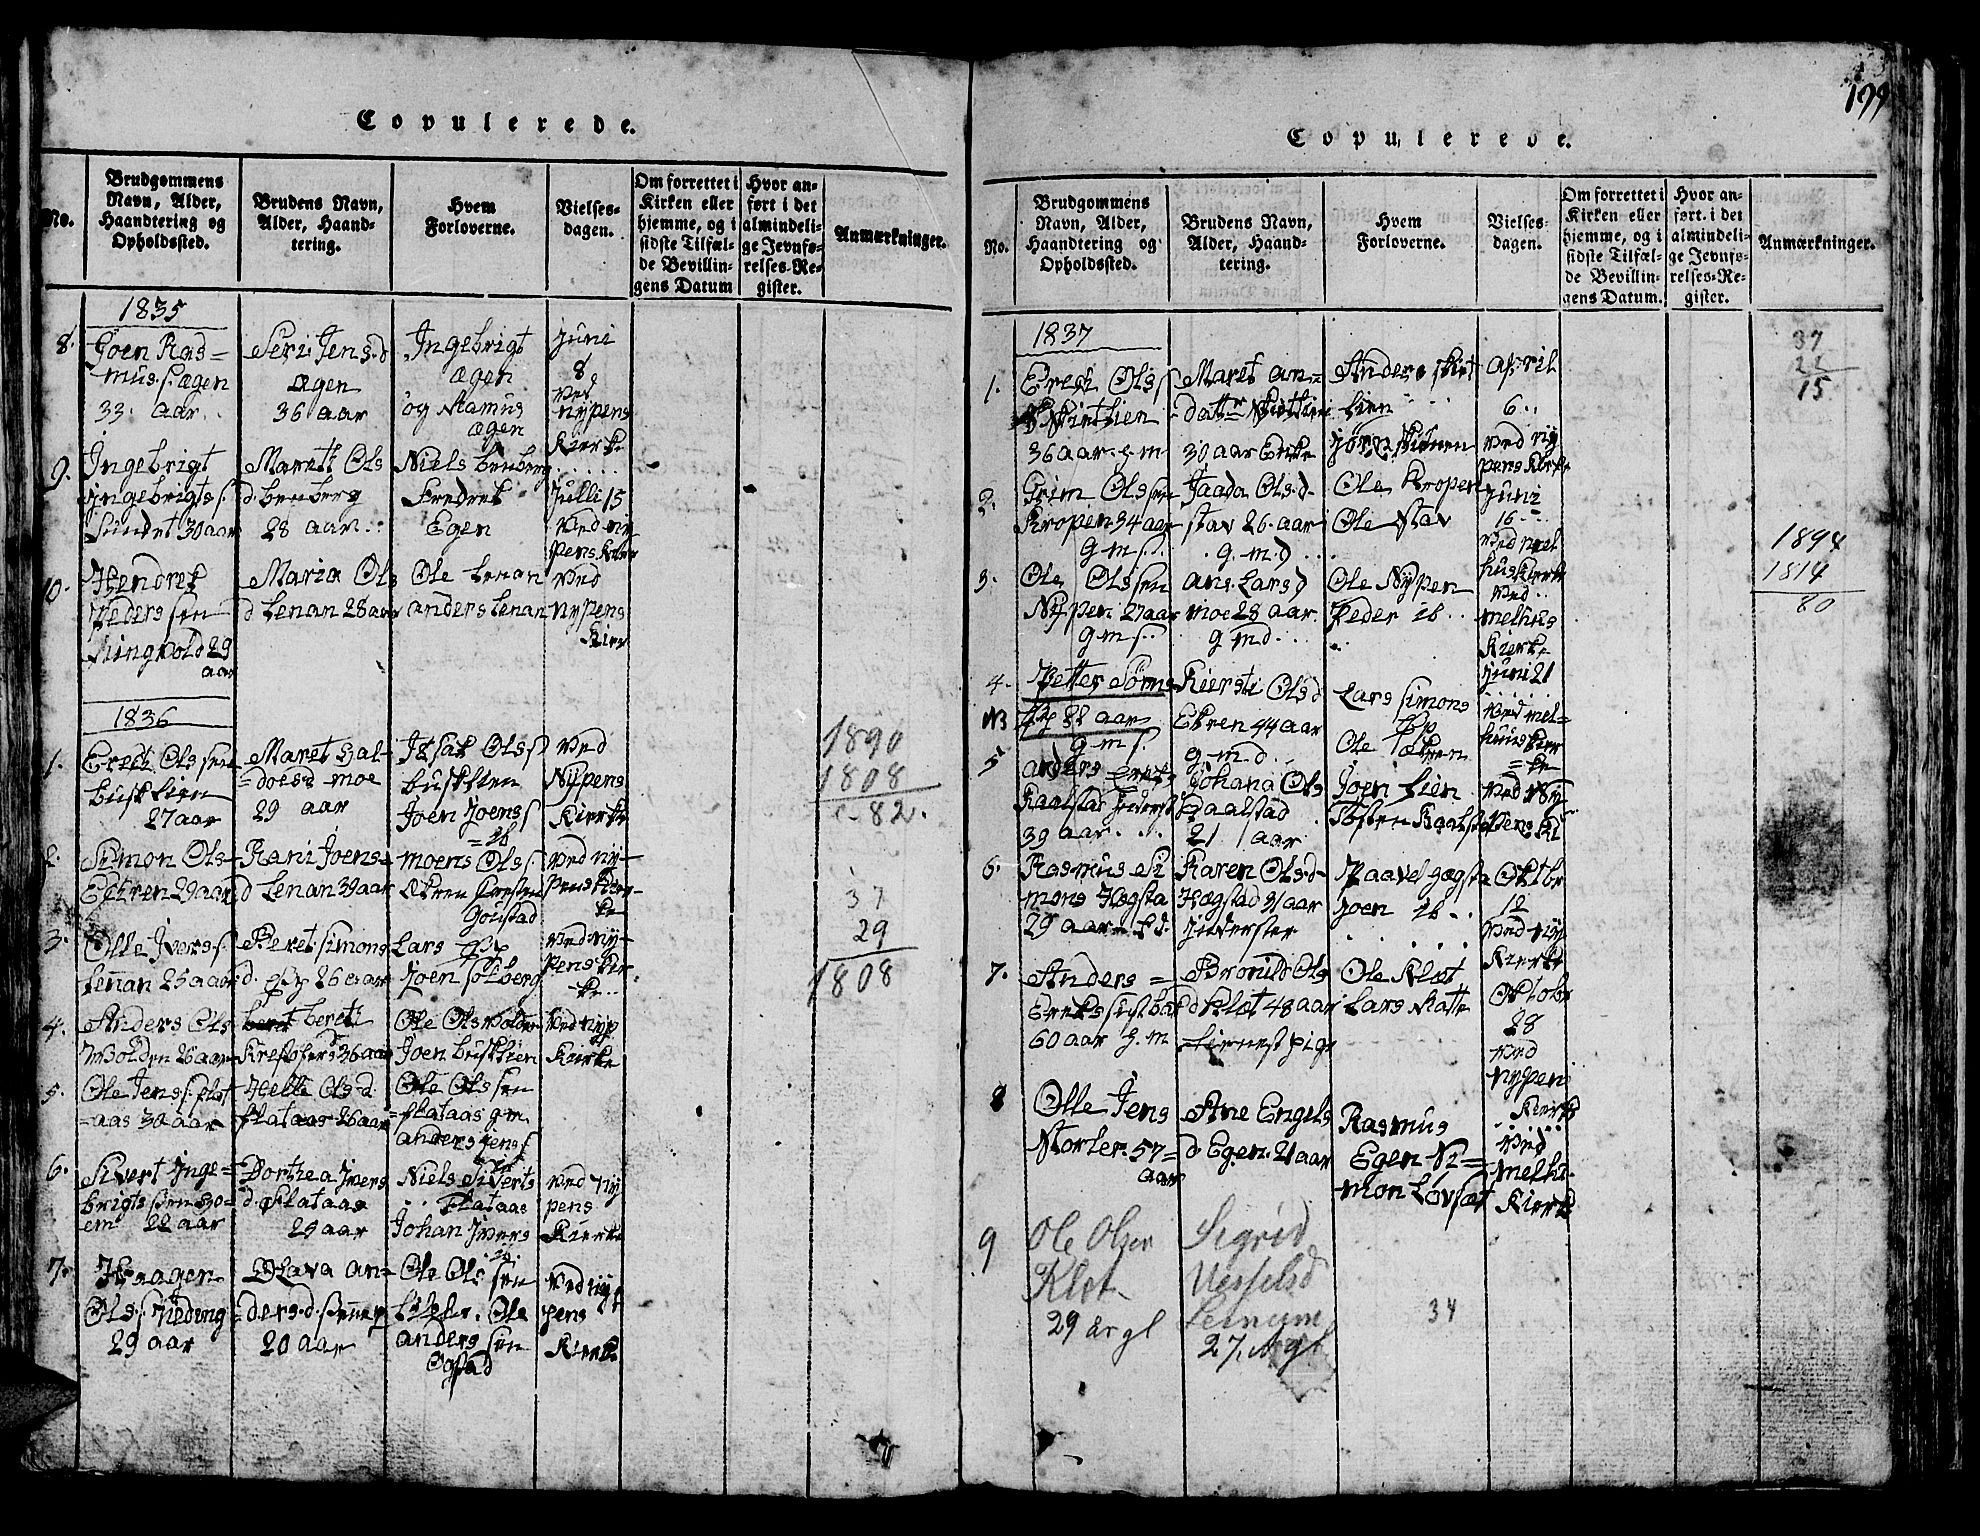 Copulerede.
No.
Brudgommens
Navn, Alder,
Haandtering og
Opholdssted.
Brudens Navn,
Alder, Haand-
tering.
Hvem
Forloverne.
Vielses-
dagen.
Om forrettet i
Kirken eller
hjemme, og i
sidste Tilfæl-
de Bevillin-
gens Datum
Hvor an-
ført i det
almindeli-
ge Jevnfø-
relses-Re-
gister.
Anmærkninger.
1835
8.
Joen Ras=
mus.s. Ægen
33. aar..
Seri Jens.d
Ægen
36 aar
Ingebrigt
Ægen
og Rasmus
Ægen
Juni
8
Ved
nypens
Kierke
9.
Ingebrigt
Ingebrigts s.
Sundet 30 aar
Marett Ols
d. benberg
28 aar
Niels benberg
Fredrek
Egen
Julli 15
Ved ny
pens Kier
10.
Hendrek
Peders sen
Ringvold 29
aar
Maria Ols
d Lenan 28 aar
Ole Lenan
anders Lenan
Ved
nypens
Kier
1836
1.
Erech Ols sen
busklien
27 aar
Maret Hal=
=does.d moe
29 aar
Isak Ols s
busklien
Joen Joens s
=ib
Ved
Nypens
Kierke
1890
1808
82.
2.
Simon Ols-
Eckren 29 aar
Rani Joens=
d Lenan 39 aar
moens Ols s
Ækren Kresten
Goustad
Ved ny-
pens Kier-
ke
3.
Olle Ivers s
Lenan 25 aar
Beret simons
d. gyp 26 aar
Lars gyp
Joen solberg
Ved ny-
pens Kir-
ke..
37
29
1808
4.
Anders Ols
Wolden 26 aar
bereti
Krestofers d 36 aar
Ole Ols volden
Joen busklien
Ved nyp
Kierke
5.
Ole Jens s. flat
=aas 30 aar
Helle Ols d
flataas 26 aar
Ole Ols sen
=flataas g.m.
anders jens s
6.
Sivert Inge=
brigts sen ho=
em 22 aar
Dorthea Ivers
d. flataas
25 aar
Niels Siverts
flataas
Johan Ivers
ib.
Ved ny
pens
Kierke
7.
Haagen
Ols.s.
29 aar
Olava an=
=ders.d.
20 aar
Ole Ols sen
Ole
anders sen
Øgstad
Ved ny
pens
Kierke
199
Copulerede.
No.
Brudgommens
Navn, Alder,
Haandtering og
Opholdssted.
Brudens Navn,
Alder, Haand-
tering.
Hvem
Forloverne.
Vielses-
dagen.
Om forrettet i
Kirken eller
hjemme, og i
sidste Tilfæl-
de Bevillin-
gens Datum.
Hvor an-
ført i det
almindeli-
ge Jevnfø-
relses-Re-
gister.
Anmærkninger.
1837
37
22
15
1.
Erech Ols s
Skiethien
36 aar. g.m
Maret an=
datter
30 aar Enke
Anders Skiet
hien
April
6..
Ved ny
pens Kirke
2.
Grim Ols sen
Kropen 34 aar
g m s.
Jaada Ols.d-
stav 26. aar
g.m.d
Ole Kropen
Ole Stav
Juni
16
Ved mel
hus Kierke
1894
1814
80
3.
Ole Ols sen
Nypen 27 aar
g m s
ane Lars d
moe 28 aar
g m d
Ole Nypen
Peder ib
Ved
melhus
Kierke
juni 21
4.
NB
Petter Sørens
gyp 22 aar
g m s.
Kiersti Ols d
Ekren 44 aar
g m d.
Lars simons
gyp
Ole Ækren
Ved mel=
huus Kier
=ke
5
anders
39 aar
Johana Ols
Raalstad
21 aar
Joen Lien
Tosten Raalstad
Ved Ny
pens Ki
6.
Rasmus Si
mons Hægsta
29 aar
Karen Ols.d-
Hægstad 31 aar
Paavel Hægsta
Joen ib
Oktbr
12
Ved ny
Kierke
7.
Anders=
60 aar g.m
Bronild Ols
d Klæt 48 aar
tienest pige
Ole Klæt
Lars
Oktobr
28
Ved
nypens
Kierke
8
Olle Jens
Storler. 57=
aar
Ane Engels
d. Egen. 21 aar
Rasmus
Egen Si=
mon Løvset
Ved
Melhu
Kierke
9
Ole Olsen
Klet
29 år gl
Sigrid
Vesselsd
Leinum
27. A gl
34